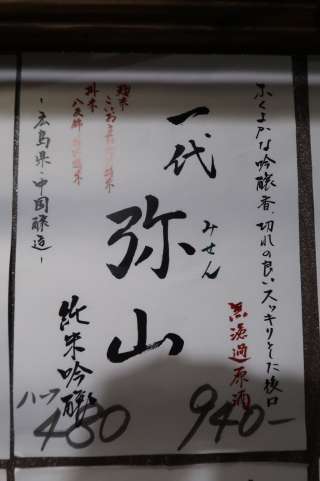 ふくよかな吟醸香、切れの良いスッキリとした後口
無濾過原酒
940-
一代
弥山
みせん
純米吟醸
ハーフ
480
麹米
掛米
~広島県・中国醸造~